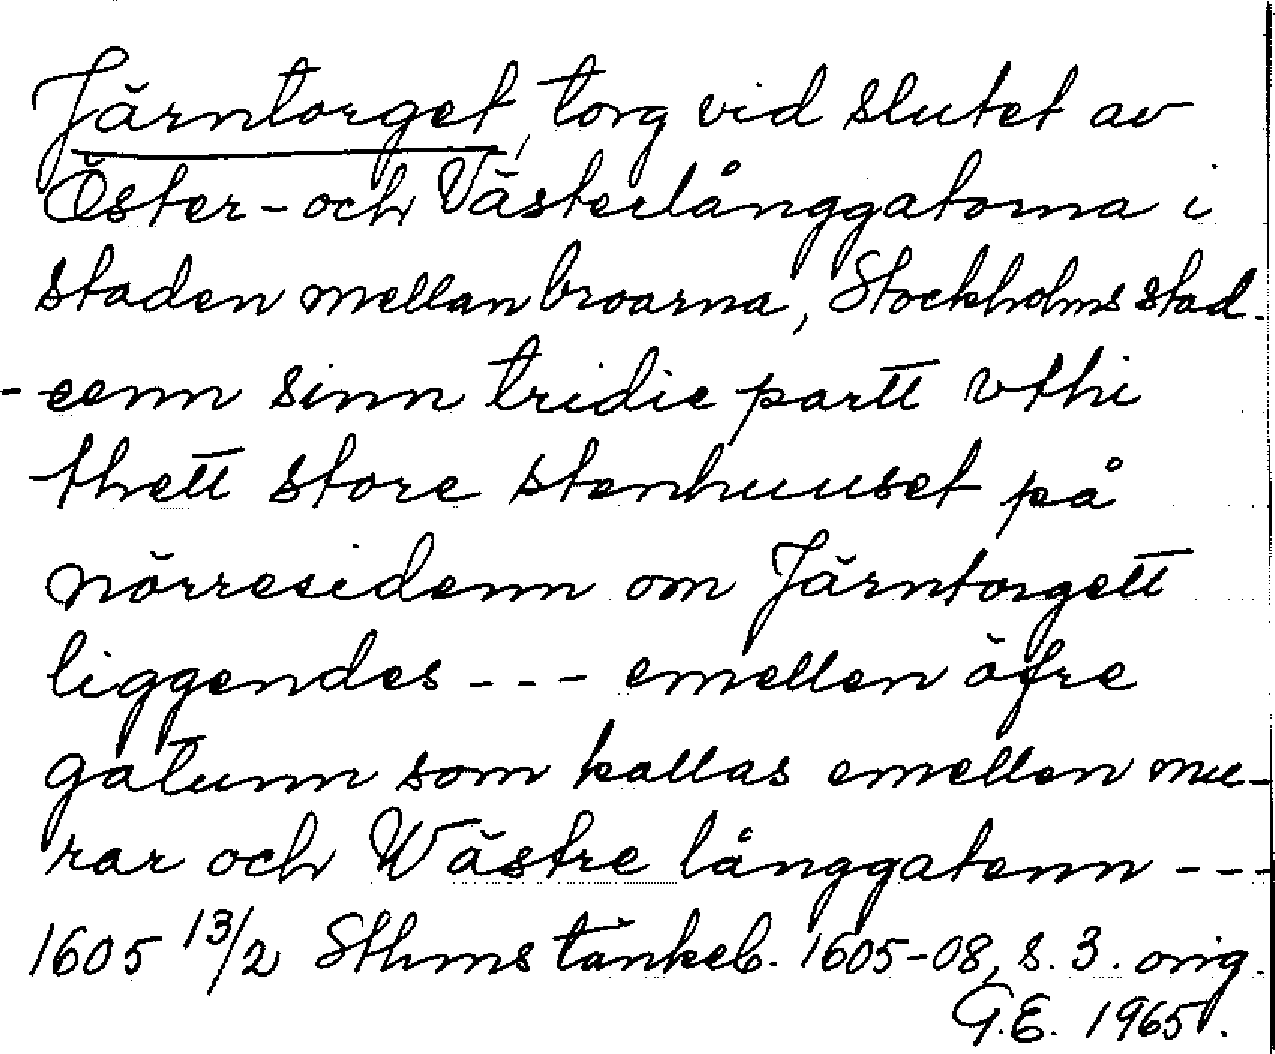 Järntorget, torg vid slutet av
Öster- och Västerlånggatorna i
staden mellan broarna, Stockholms stad.
- eenn sinn tridie partt vthi
thett store stenhuuset på
nörresidenn om Järntorgett
liggendes --- emellen öfre
gatunn som kallas emellen mu-
rar och Wästre långgatenn ---
1605 13/2 Sthms tänkeb. 1605-08, s. 3. orig.
G.E. 1965.